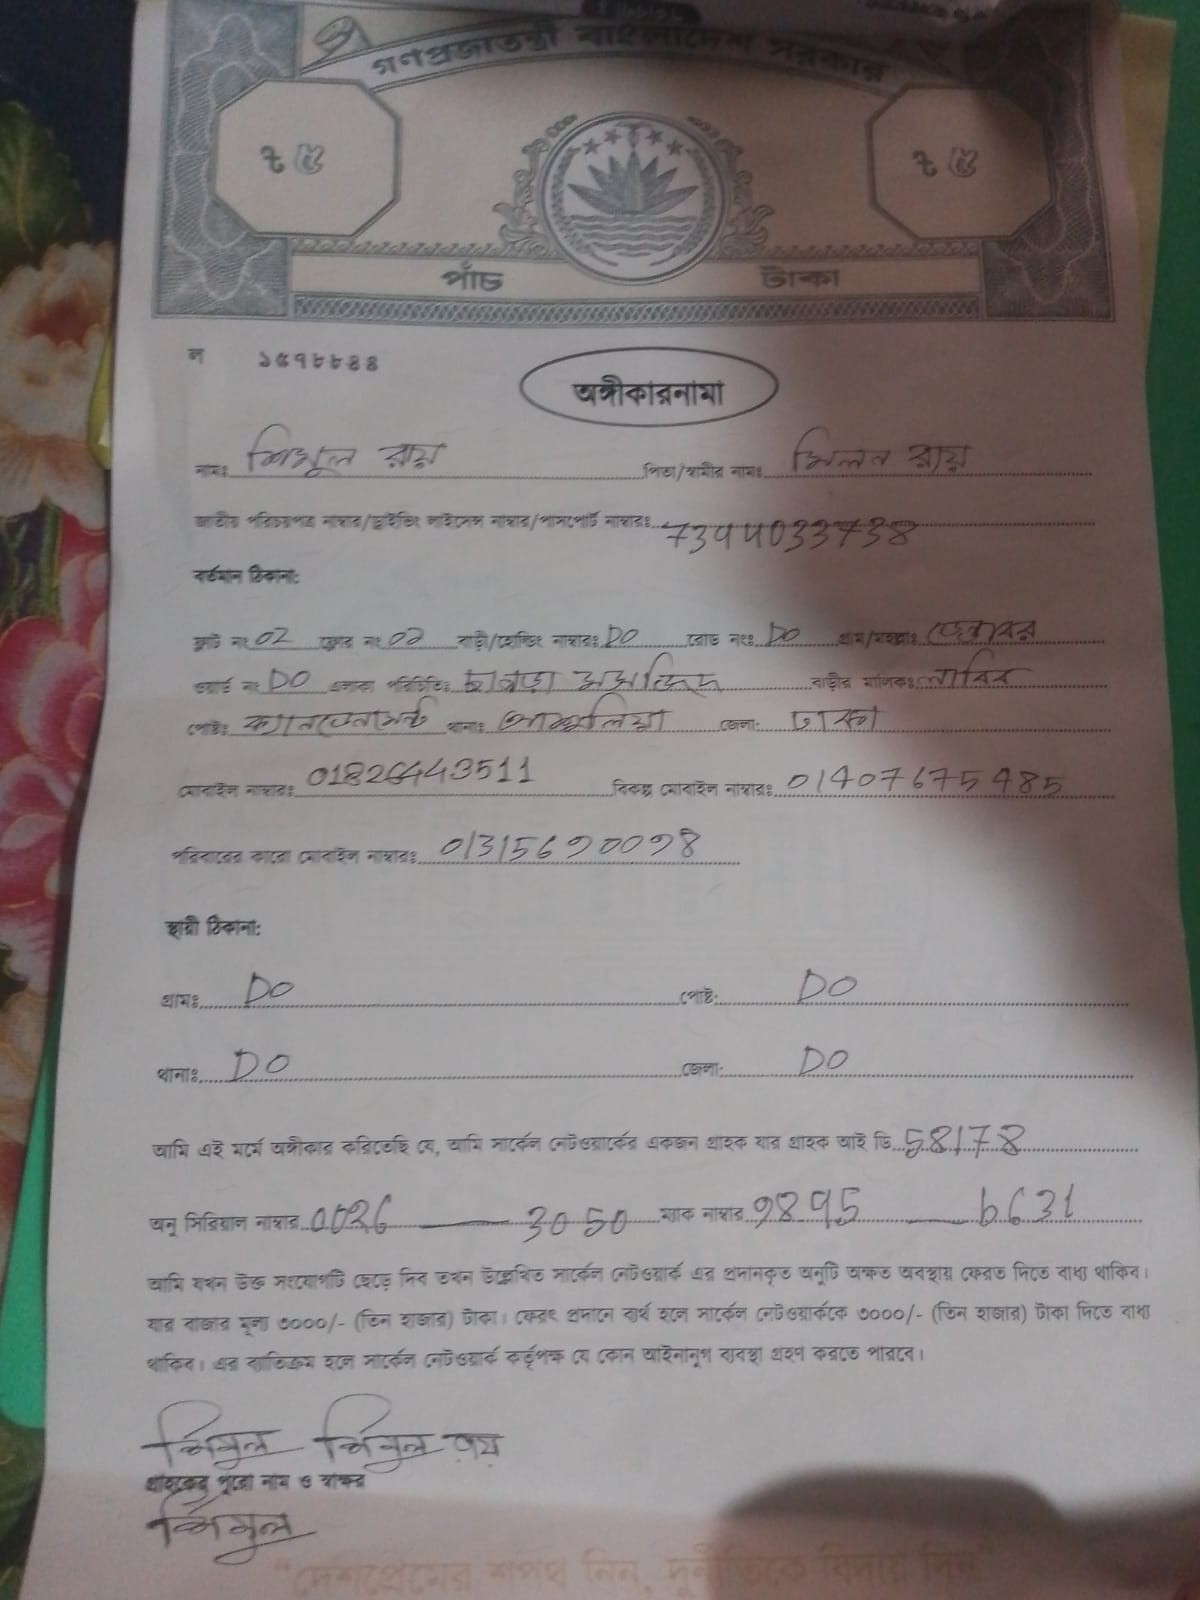 গণপ্রজাতন্ত্রী বাংলাদেশ সরকার
৳ ৫ ৳ ৫
পাঁচ টাকা
ল ১৫৭৮৮৪৪
অঙ্গীকারনামা
নামঃ শিমুল রায় পিতা/স্বামীর নামঃ মিলন রায়
জাতীয় পরিচয়পত্র নাম্বার/ড্রাইভিং লাইসেন্স নাম্বার/পাসপোর্ট নাম্বারঃ
বর্তমান ঠিকানা:
ফ্লাট নং 02 ফ্লোর নং 02 বাড়ী/হোল্ডিং নাম্বারঃ DO রোড নংঃ DO গ্রাম/মহল্লাঃ
ওয়ার্ড নং DO এলাকা পরিচিতিঃ মসজিদ বাড়ীর মালিকঃ
পোষ্ট: ক্যান্টনমেন্ট থানাঃ আশুলিয়া জেলা: ঢাকা
মোবাইল নাম্বারঃ 01826443511 বিকল্প মোবাইল নাম্বারঃ 01407675485
পরিবারের কারো মোবাইল নাম্বারঃ
স্থায়ী ঠিকানা:
গ্রামঃ DO পোষ্ট: DO
থানাঃ DO জেলা: DO
আমি এই মর্মে অঙ্গীকার করিতেছি যে, আমি সার্কেল নেটওয়ার্কের একজন গ্রাহক যার গ্রাহক আই ডি 58178
অনু সিরিয়াল নাম্বার 3050 ম্যাক নাম্বার b631
আমি যখন উক্ত সংযোগটি ছেড়ে দিব তখন উল্লেখিত সার্কেল নেটওয়ার্ক এর প্রদানকৃত অনুটি অক্ষত অবস্থায় ফেরত দিতে বাধ্য থাকিব।
যার বাজার মূল্য ৩০০০/- (তিন হাজার) টাকা। ফেরৎ প্রদানে ব্যর্থ হলে সার্কেল নেটওয়ার্ককে ৩০০০/- (তিন হাজার) টাকা দিতে বাধ্য
থাকিব। এর ব্যতিক্রম হলে সার্কেল নেটওয়ার্ক কর্তৃপক্ষ যে কোন আইনানুগ ব্যবস্থা গ্রহণ করতে পারবে।
শিমুল শিমুল রায়
গ্রাহকের পুরো নাম ও স্বাক্ষর
শিমুল
"দেশপ্রেমের শপথ নিন, দুর্নীতিকে বিদায় দিন"